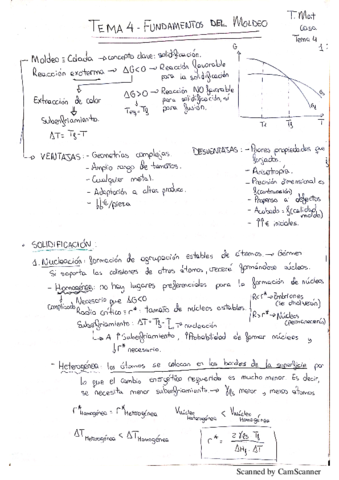 TEMA 4 - FUNDAMENTOS DEL MOLDEO
T. Mat
casa
Tema 4
1
Moldeo = Colada → concepto clave: solidificación.
Reacción exoterma → ΔG<0 → Reacción favorable
para la solidificación
Extracción de calor
ΔG>0 → Reacción NO favorable
para solidificación, sí
para fusión.
Subenfriamiento
ΔT = Tf - T
G
T
VENTAJAS: - Geometrías complejas
- Amplio rango de tamaños.
- Cualquier metal.
- Adaptación a altas produc.
€/pieza
DESVENTAJAS: - Peores propiedades que
forjados.
- Anisotropía.
- Precisión dimensional es
- Propenso a defectos
- Acabado: f(calidad
molde)
- ↑↑€ iniciales.
SOLIDIFICACIÓN:
1. Nucleación: formación de agrupación estables de átomos → Gérmen
Si soporta las colisiones de otros átomos, crecerá formándose núcleos.
- Homogénea: no hay lugares preferenciales para la formación de núcleos
complicado
Necesario que ΔG<0
Radio crítico r*: tamaño de núcleos estables.
R<r* → Embriones
(se disuelven)
R>r* → Núcleos
(permanecerán)
Subenfriamiento: ΔT = Tf - T → nucleación
→ A ↑ Subenfriamiento, ↑ Probabilidad de formar núcleos y
↓ r* necesario.
- Heterogénea: los átomos se colocan en los bordes de la superficie por
lo que el cambio energético requerido es mucho menor. Es decir,
se necesita menor subenfriamiento → menor, menos átomos
r* homogénea = r* Heterogénea
Heterogénea < Homogénea
ΔT Heterogénea < ΔT Homogénea
r* = 2 γ Tf / ΔHf · ΔT
Scanned by CamScanner